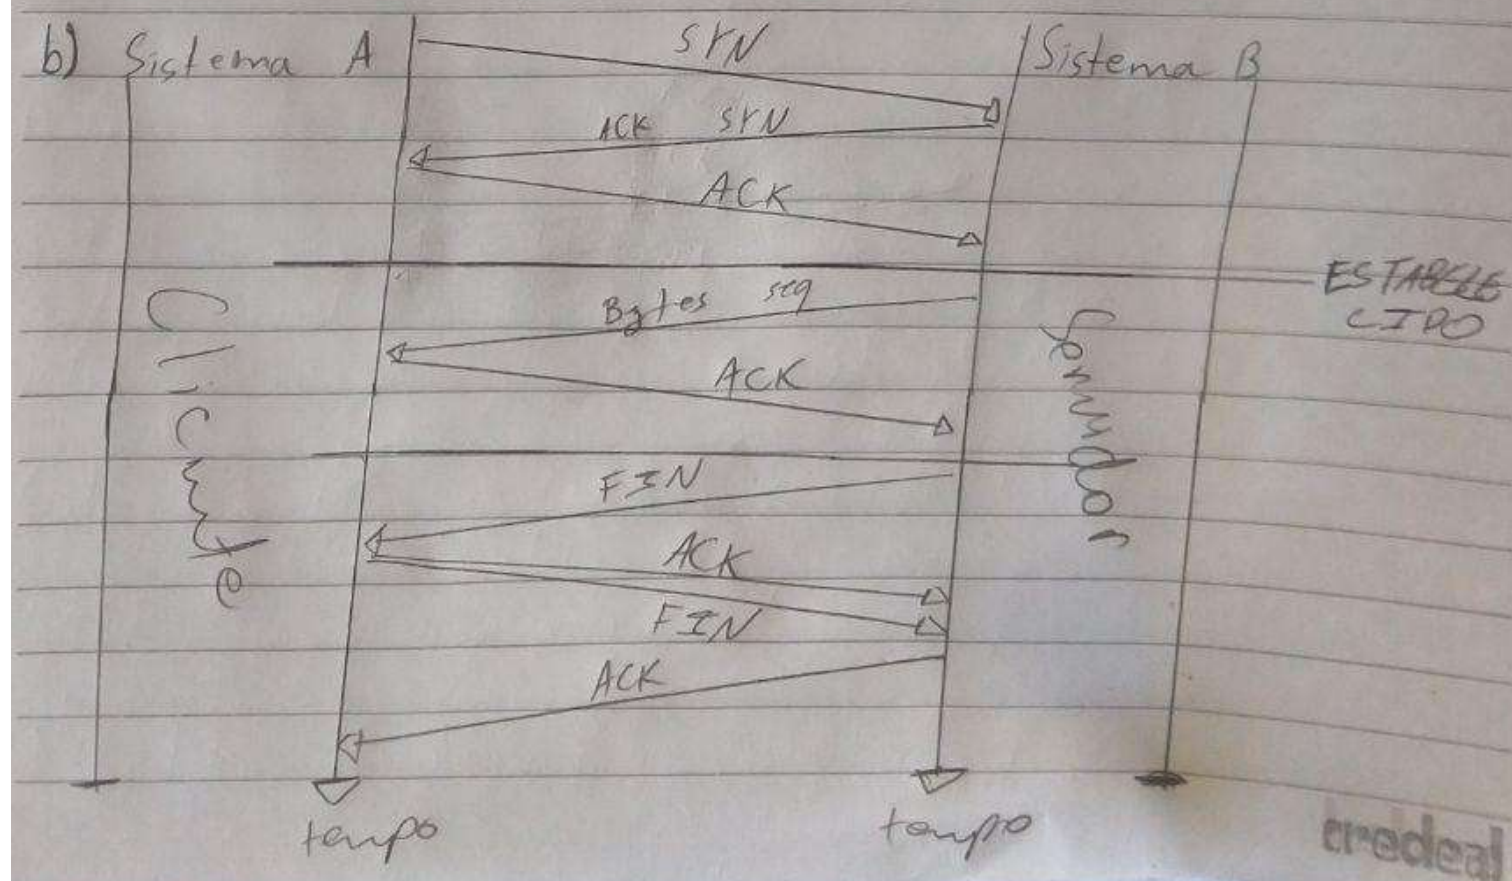 b) Sistema A
SYN
Sistema B
ACK SYN
ACK
ESTABELE
CIDO
Bytes seg
Cliente
Servidor
ACK
FIN
ACK
FIN
ACK
tempo
tempo
credeal